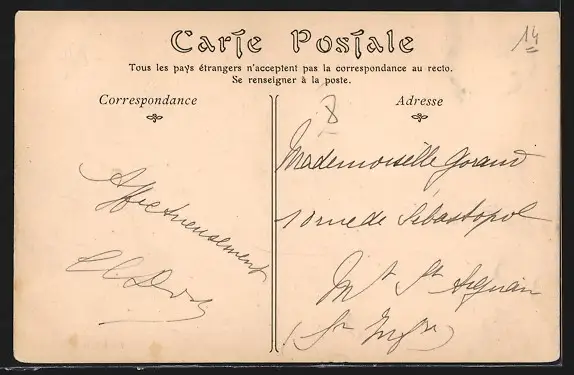 14
Carte Postale
Tous les pays étrangers n'acceptent pas la correspondance au recto.
Se renseigner à la poste.
Correspondance
Adresse
Affectueusement
Mademoiselle
10 rue de Sébastopol
Mt St Aignan
(Sr Infre)